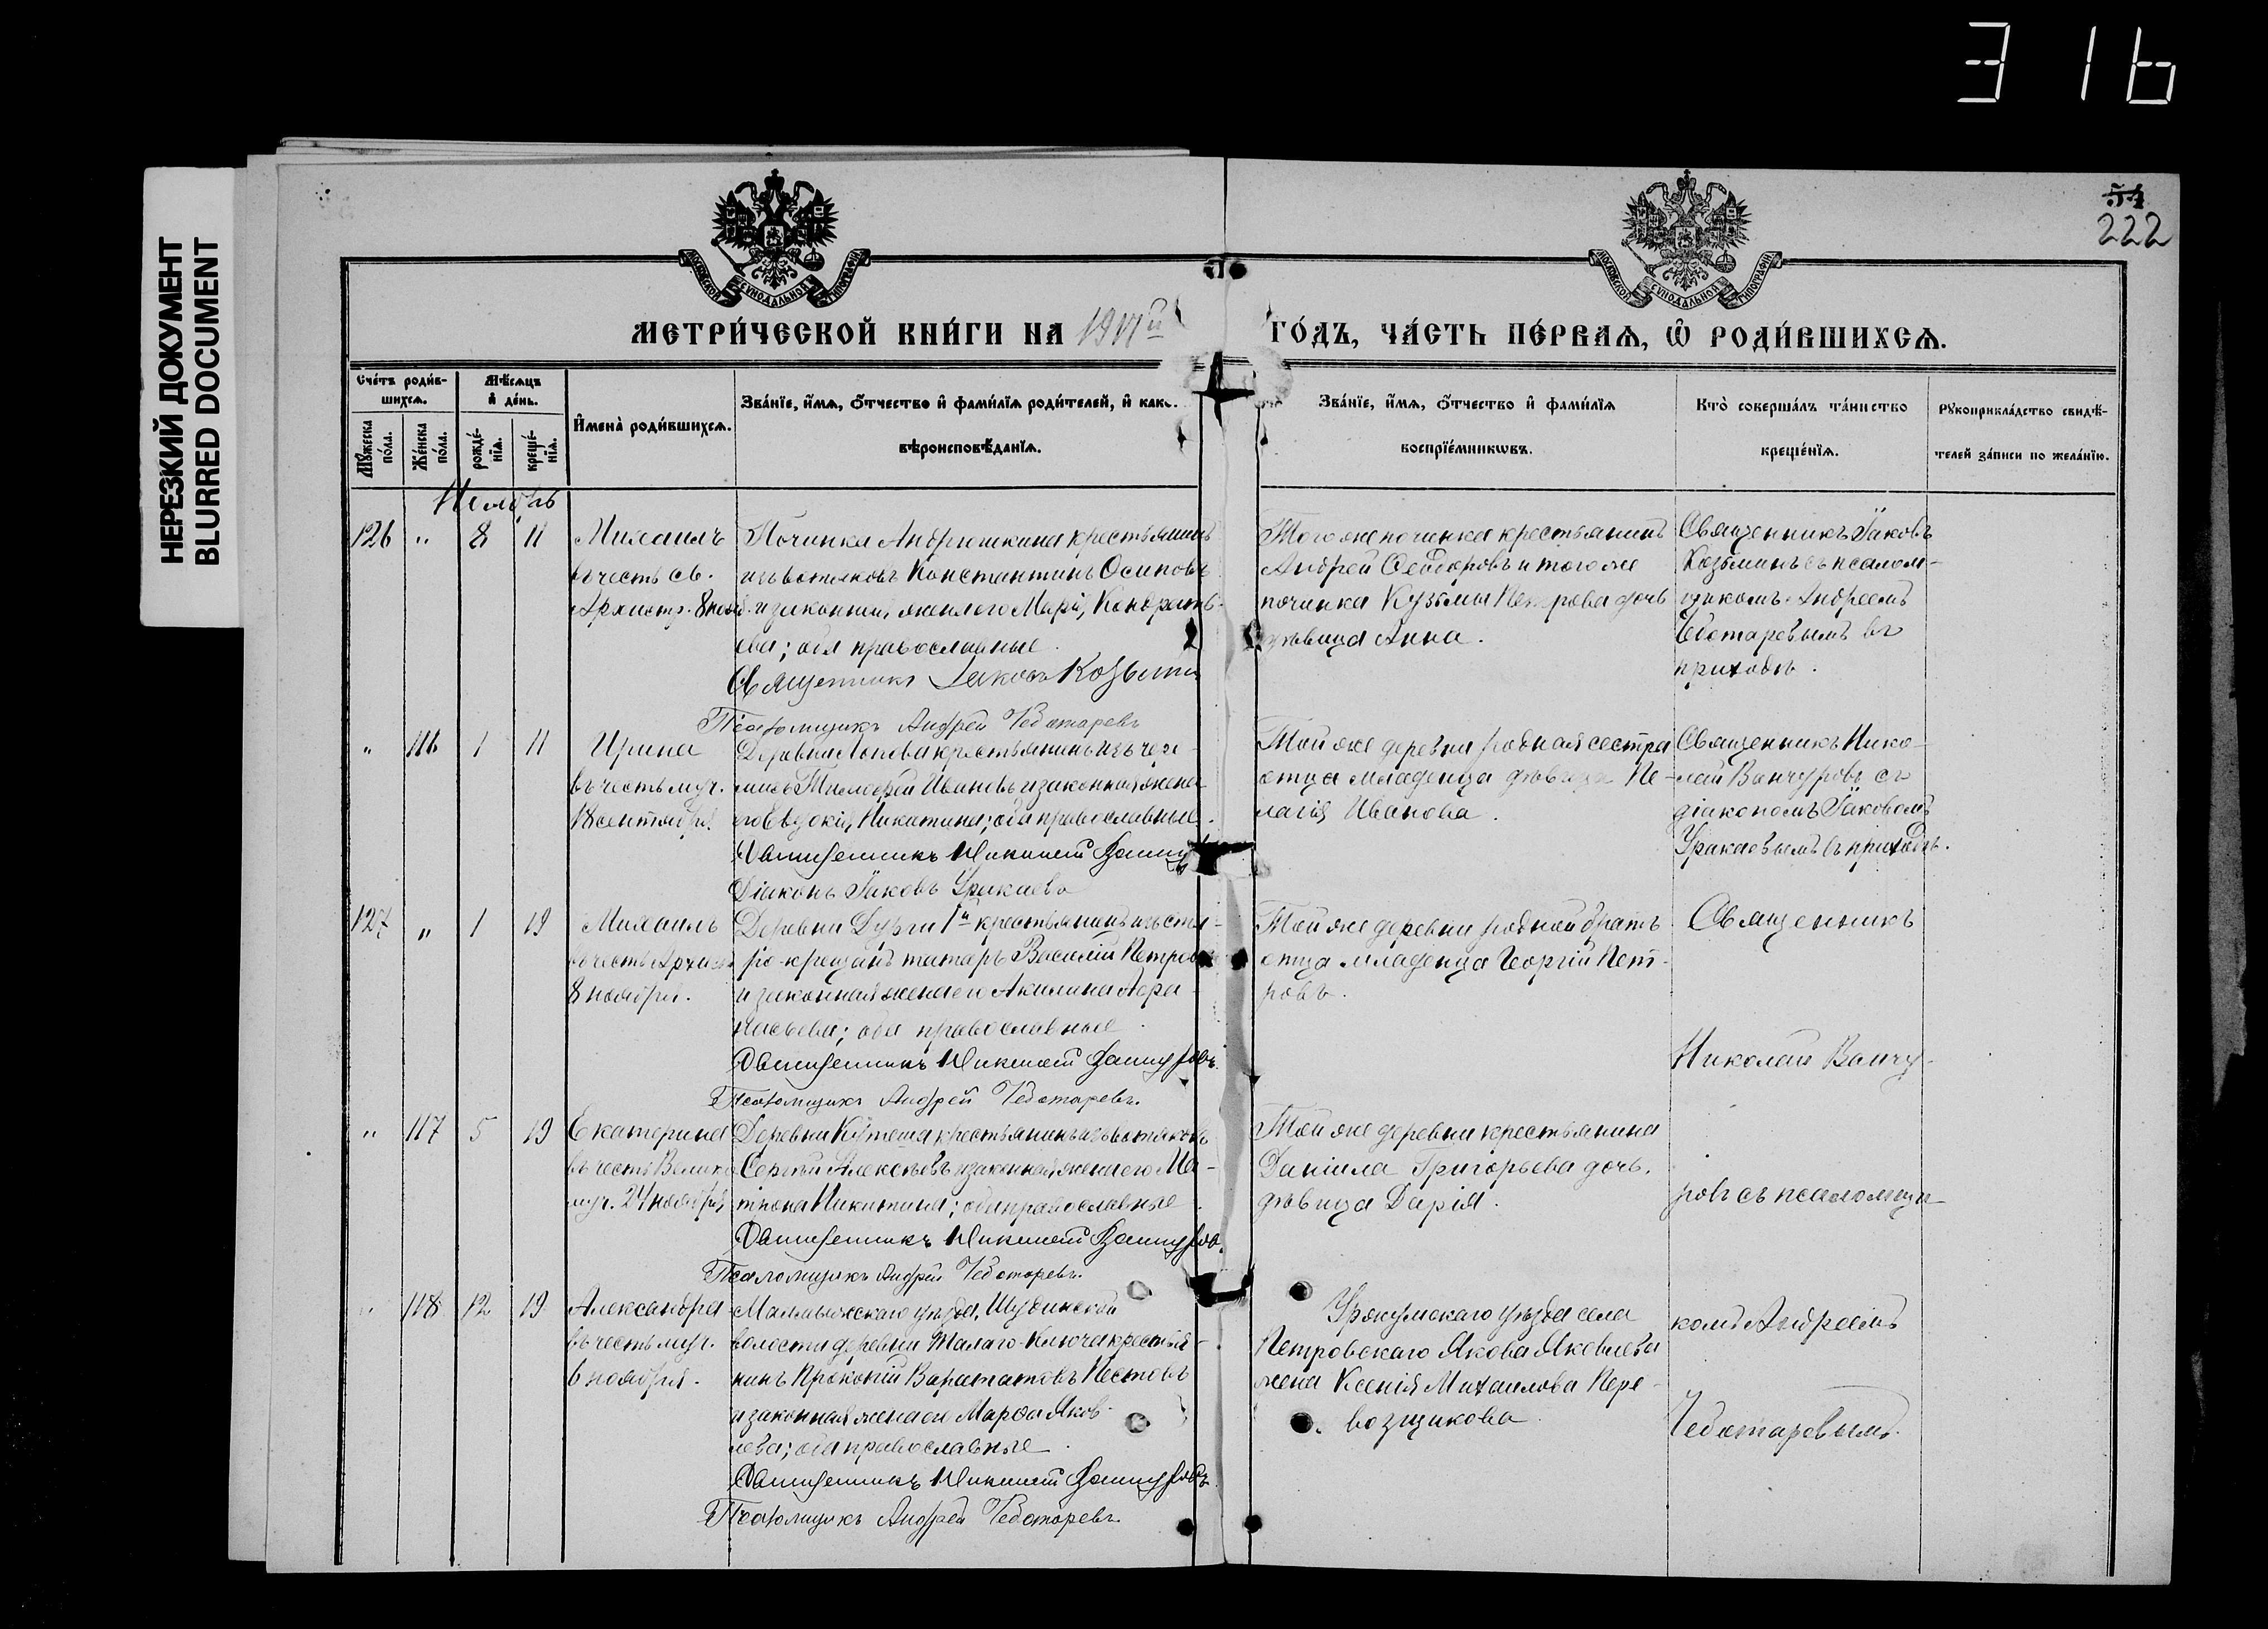 316
НЕРЕЗКИЙ ДОКУМЕНТ
BLURRED DOCUMENT
54
222
МОСКОВСКОЙ СѴНОДАЛЬНОЙ ТИПОГРАФІИ
МОСКОВСКОЙ СѴНОДАЛЬНОЙ ТИПОГРАФІИ
МЕТРИ́ЧЕСКОЙ КНИ́ГИ НА
ГО́ДЪ, ЧА́СТЬ ПЕ́РВАѦ, Ѡ҆ РОДИ́ВШИХСѦ.
Сче́тъ роди́в-
шихсѧ.
Мѣ́сѧцъ
и҆ де́нь.
Мꙋ́жеска
по́ла.
Же́нска
по́ла.
рожде́-
нїѧ.
креще́-
нїѧ.
И҆мена̀ роди́вшихсѧ.
Зва́нїе, и҆́мѧ, ѻ҆́тчество и҆ фами́лїѧ роди́телей, и҆ како-
вѣроисповѣ́данїѧ.
Зва́нїе, и҆́мѧ, ѻ҆́тчество и҆ фами́лїѧ
воспрїе́мникѡвъ.
Кто̀ соверша́лъ та́инство
креще́нїѧ.
Рꙋкоприкла́дство свидѣ́-
телей за́писи по жела́нїю.
Ноябрь
126 " 8 11
Михаилъ
въ честь св.
Архистр. 8 нояб.
Починка Андрюшкина крестьянинъ
изъ вотяковъ Константинъ Осиповъ
и законная жена его Марія Кондрать-
ева; оба православные.
Священникъ Іаковъ Козьминъ
Псаломщикъ Андрей Чеботаревъ
Того же починка крестьянинъ
Андрей Ѳеодоровъ и того же
починка Кузьмы Петрова дочь
дѣвица Анна.
Священникъ Іаковъ
Козьминъ съ псалом-
щикомъ Андреемъ
Чеботаревымъ въ
приходѣ.
" 116 1 11
Ирина
въ честь муч.
18 сентября.
Деревни Лопова крестьянинъ изъ чере-
мисъ Тимоѳей Ивановъ и законная жена
его Евдокія Никитина; оба православные.
Священникъ Николай Ванчуровъ
Діаконъ Іаковъ Уракаевъ
Той же деревни родная сестра
отца младенца дѣвица Пе-
лагія Иванова.
Священникъ Нико-
лай Ванчуровъ съ
діакономъ Іаковомъ
Уракаевымъ въ приходѣ.
127 " 1 19
Михаилъ
въ честь Архист.
8 ноября.
Деревни Дурги 1й крестьянинъ изъ ста-
ро-крещенъ татаръ Василій Петровъ
и законная жена его Акилина Аѳа-
насьева; оба православные.
Священникъ Николай Ванчуровъ.
Псаломщикъ Андрей Чеботаревъ.
Той же деревни родной братъ
отца младенца Георгій Пет-
ровъ.
Священникъ
Николай Ванчу-
" 117 5 19
Екатерина
въ честь Велико
муч. 24 ноября
Деревни Кутеша крестьянинъ изъ вотяковъ
Сергій Алексѣевъ и законная жена его Ма-
трона Никитина; оба православные.
Священникъ Николай Ванчуровъ.
Псаломщикъ Андрей Чеботаревъ.
Той же деревни крестьянина
Даніила Григорьева дочь,
дѣвица Дарія.
ровъ съ псаломщи-
" 118 12 19
Александра
въ честь муч.
6 ноября.
Малмыжскаго уѣзда, Шудинской
волости деревни Малаго-Ключа крестья-
нинъ Прокопій Пестовъ
и законная жена его Марѳа Яков-
лева; оба православные.
Священникъ Николай Ванчуровъ.
Псаломщикъ Андрей Чеботаревъ.
Уржумскаго уѣзда села
Петровскаго Якова Яковлева
жена Ксенія Михаилова Пере-
возщикова.
комъ Андреемъ
Чеботаревымъ.